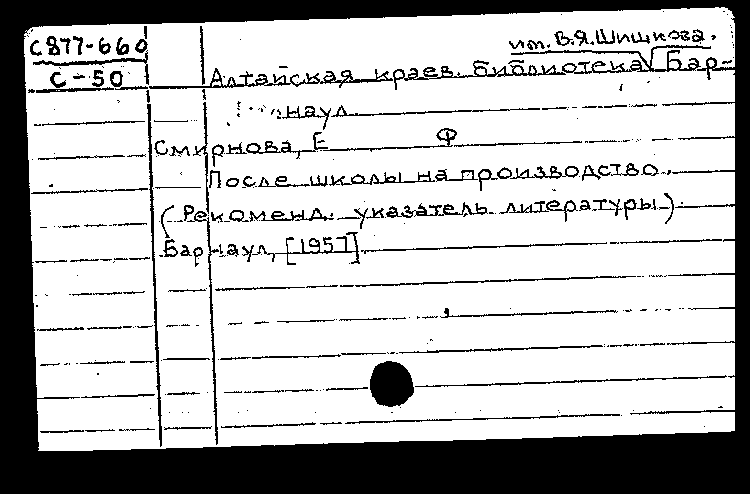 С877-660
С-50
им. В.Я.Шишкова.
Алтайская краев. библиотека Бар-
наул.
Смирнова, Е Ф
После школы на производство.
(Рекоменд. указатель литературы).
Барнаул, [1957].